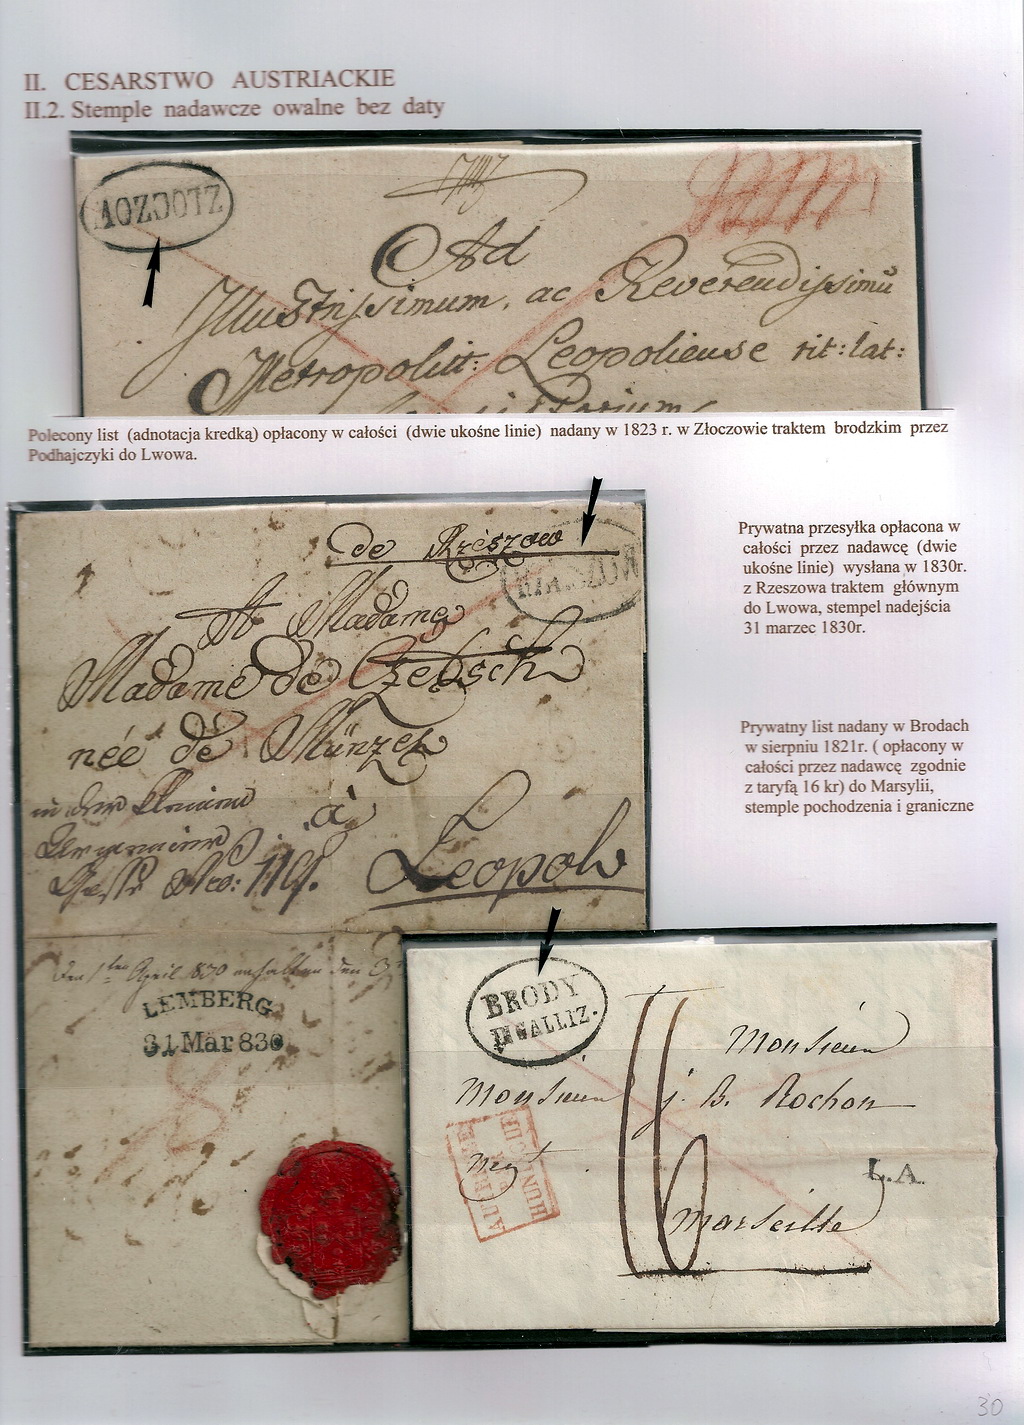 II. CESARSTWO AUSTRIACKIE
II.2. Stemple nadawcze owalne bez daty
ZLOCZOW
Ad
Illustrissimum, ac Reverendissimū
Metropolitt: Leopoliense rit: lat:
Polecony list (adnotacja kredką) opłacony w całości (dwie ukośne linie) nadany w 1823 r. w Złoczowie traktem brodzkim przez
Podhajczyki do Lwowa.
de Rzeszow
A Madame
Madame de Czetsch
née de Münzel
in der
Nro: 119.
à
Leopol
Den 1ten April 830 erhalten den
LEMBERG
31 Mar 830
Prywatna przesyłka opłacona w
całości przez nadawcę (dwie
ukośne linie) wysłana w 1830r.
z Rzeszowa traktem głównym
do Lwowa, stempel nadejścia
31 marzec 1830r.
Prywatny list nadany w Brodach
w sierpniu 1821r. ( opłacony w
całości przez nadawcę zgodnie
z taryfą 16 kr) do Marsylii,
stemple pochodzenia i graniczne
BRODY
IN GALLIZ.
16
Monsieur
Monsieur J. B. Rochon
Negt
AUTRICHE
PAR
HUNINGUE
L.A.
Marseille
30